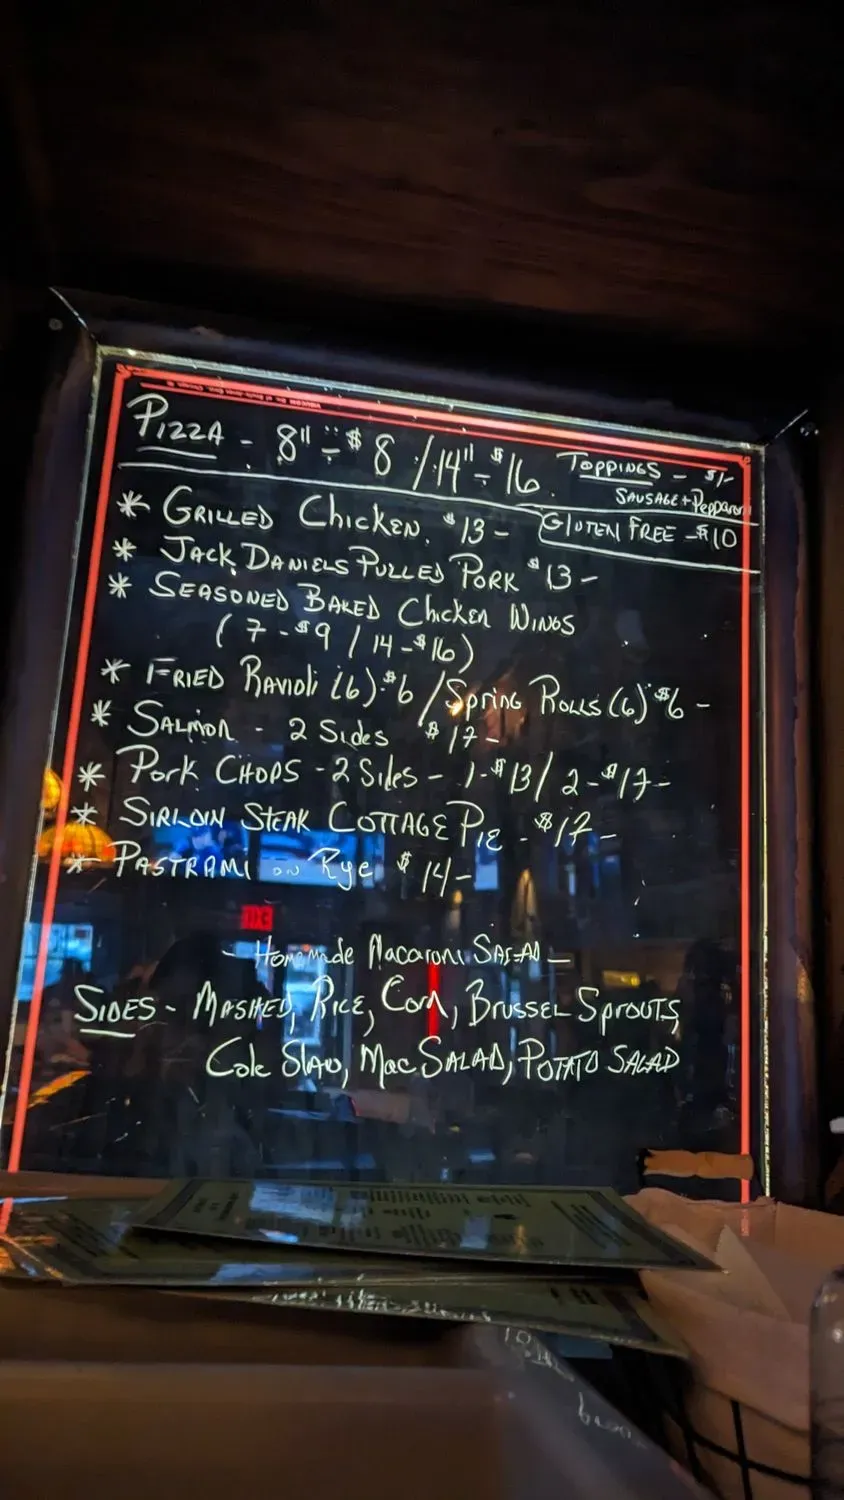 PIZZA - 8" - $8 / 14" - $16.
TOPPINGS - $1-
SAUSAGE + Pepperoni
GLUTEN FREE - $10
* GRILLED Chicken. $13 -
* JACK DANIELS PULLED PORK $13 -
* SEASONED BAKED Chicken WINGS
(7 - $9 / 14 - $16)
* FRIED RAVIOLI (6) $6 / SPRING ROLLS (6) $6 -
* SALMON - 2 Sides $17 -
* Pork CHOPS - 2 Sides - 1 - $13 / 2 - $17 -
* SIRLOIN STEAK COTTAGE PIE - $17 -
* PASTRAMI on Rye $14 -
- Homemade Macaroni SALAD -
SIDES - MASHED, RICE, Corn, BRUSSEL SPROUTS,
Cole Slaw, Mac SALAD, POTATO SALAD